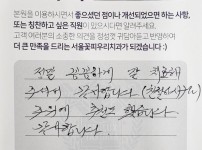 본원을 이용하시면서 좋으셨던 점이나 개선되었으면 하는 사항,
또는 칭찬하고 싶은 직원이 있으시다면 알려주세요.
고객 여러분의 소중한 의견을 정성껏 귀담아듣고 반영하여
더 큰 만족을 드리는 서울꽃피우리치과가 되겠습니다 :)
정말 친절하게 잘 치료해
주셔서 감사합니다
주위에 추천도 했습니다
감사합니다